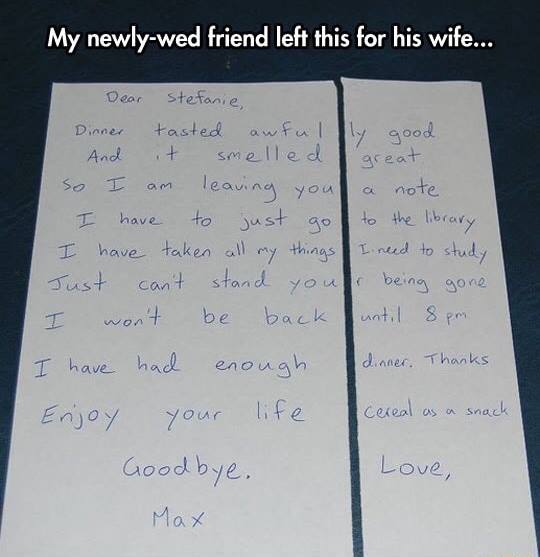 My newly-wed friend left this for his wife...
Dear Stefanie,
Dinner tasted awfully good
And it smelled great
So I am leaving you a note
I have to just go to the library
I have taken all my things I need to study
Just can't stand your being gone
I won't be back until 8 pm
I have had enough dinner. Thanks
Enjoy your life cereal as a snack
Goodbye. Love,
Max